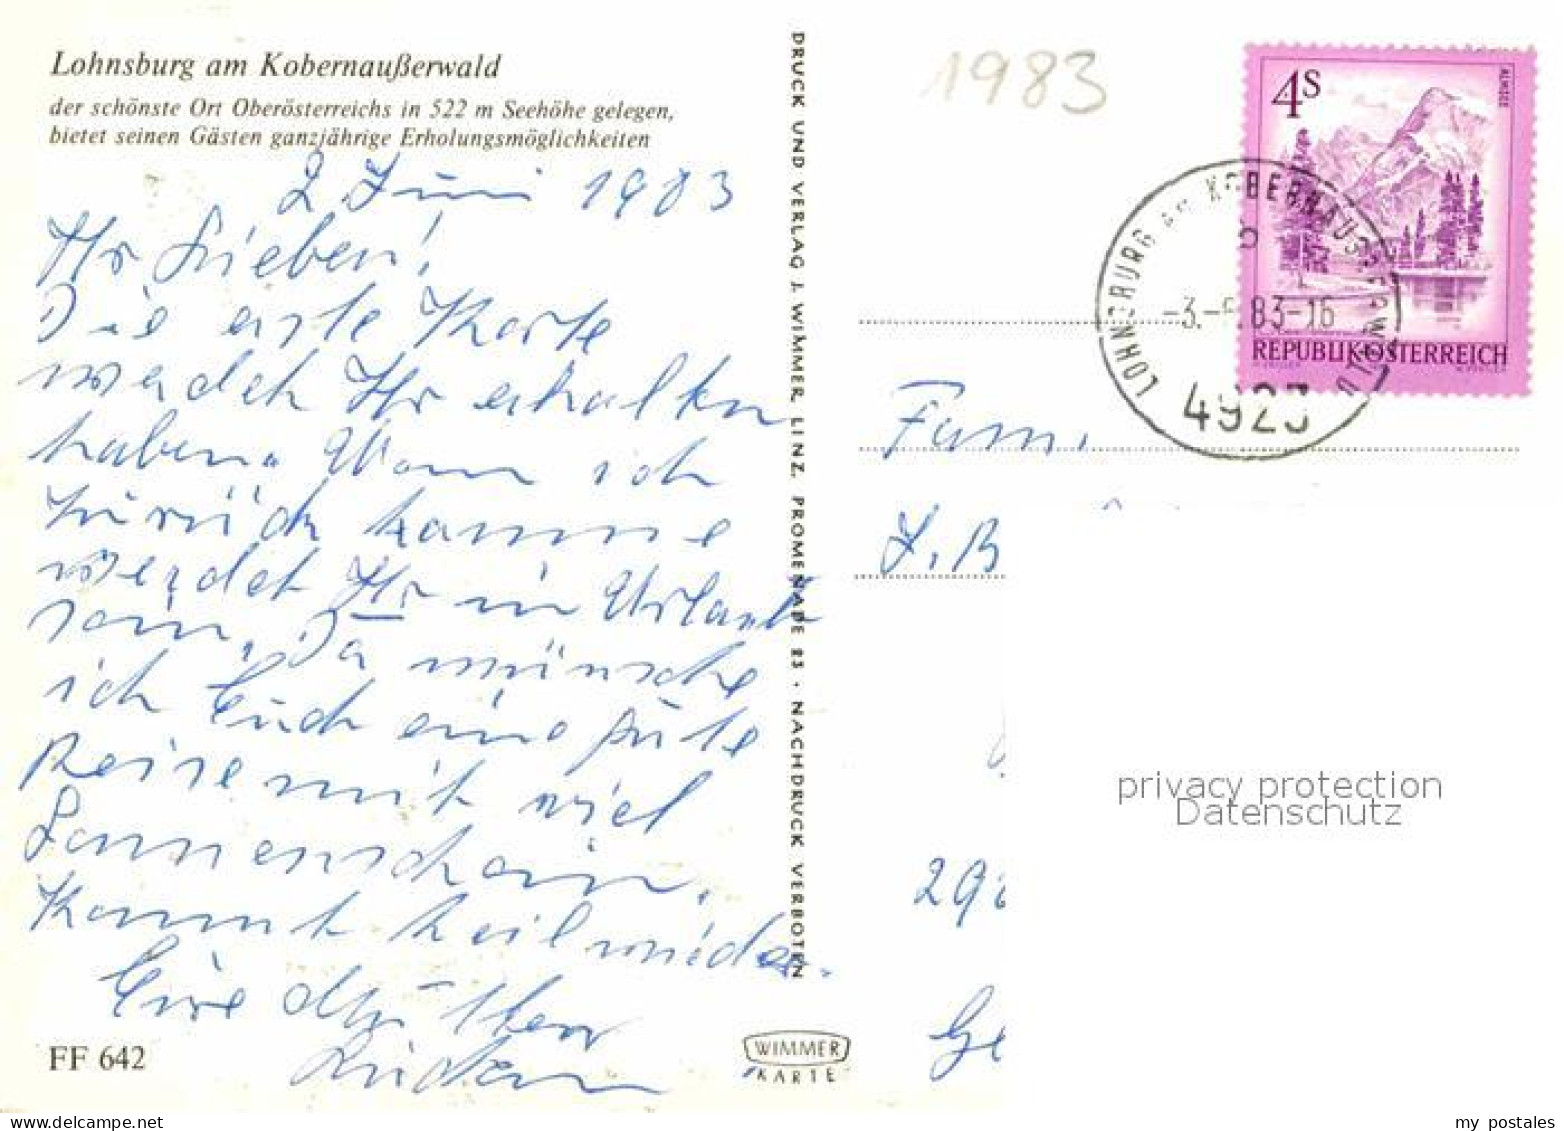 Lohnsburg am Kobernaußerwald
der schönste Ort Oberösterreichs in 522 m Seehöhe gelegen,
bietet seinen Gästen ganzjährige Erholungsmöglichkeiten
2 Juni 1983
Ihr Lieben!
Die erste Karte
werdet Ihr erhalten
haben. Wenn ich
zurück komme
werdet Ihr in Urlaub
sein. Da wünsche
ich Euch eine gute
Reise mit viel
Sonnenschein.
Kommt heil wieder.
Eure
FF 642
DRUCK UND VERLAG J. WIMMER, LINZ, PROMENADE 23 · NACHDRUCK VERBOTEN
WIMMER
KARTE
1983
4S
ALMSEE
REPUBLIK ÖSTERREICH
LOHNSBURG AM KOBERNAUSSERWALD
83-16
4923
Fam.
J. B
29
Ge
privacy protection
Datenschutz
my postales